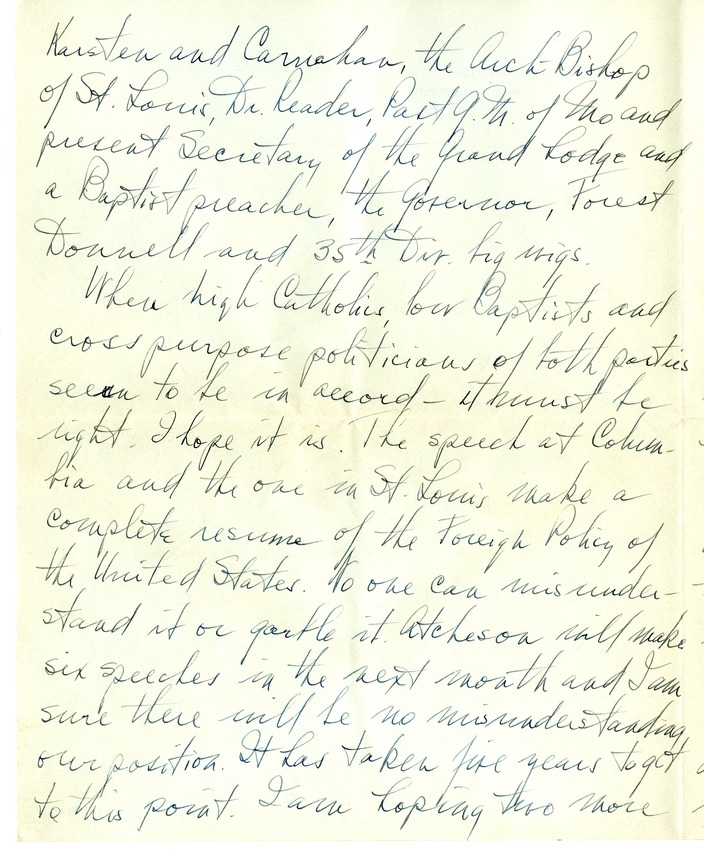 Karsten and Carnahan, the Arch-Bishop
of St. Louis, Dr. Reader, Past G.M. of Mo and
present Secretary of the Grand Lodge and
a Baptist preacher, the Governor, Forest
Donnell and 35th Div. big wigs.
When high Catholics, low Baptists and
cross purpose politicians of both parties
seem to be in accord - it must be
right. I hope it is. The speech at Colum-
bia and the one in St. Louis make a
complete resume of the Foreign Policy of
the United States. No one can misunder-
stand it or garble it. Atcheson will make
six speeches in the next month and I am
sure there will be no misunderstanding
our position. It has taken five years to get
to this point. I am hoping two more